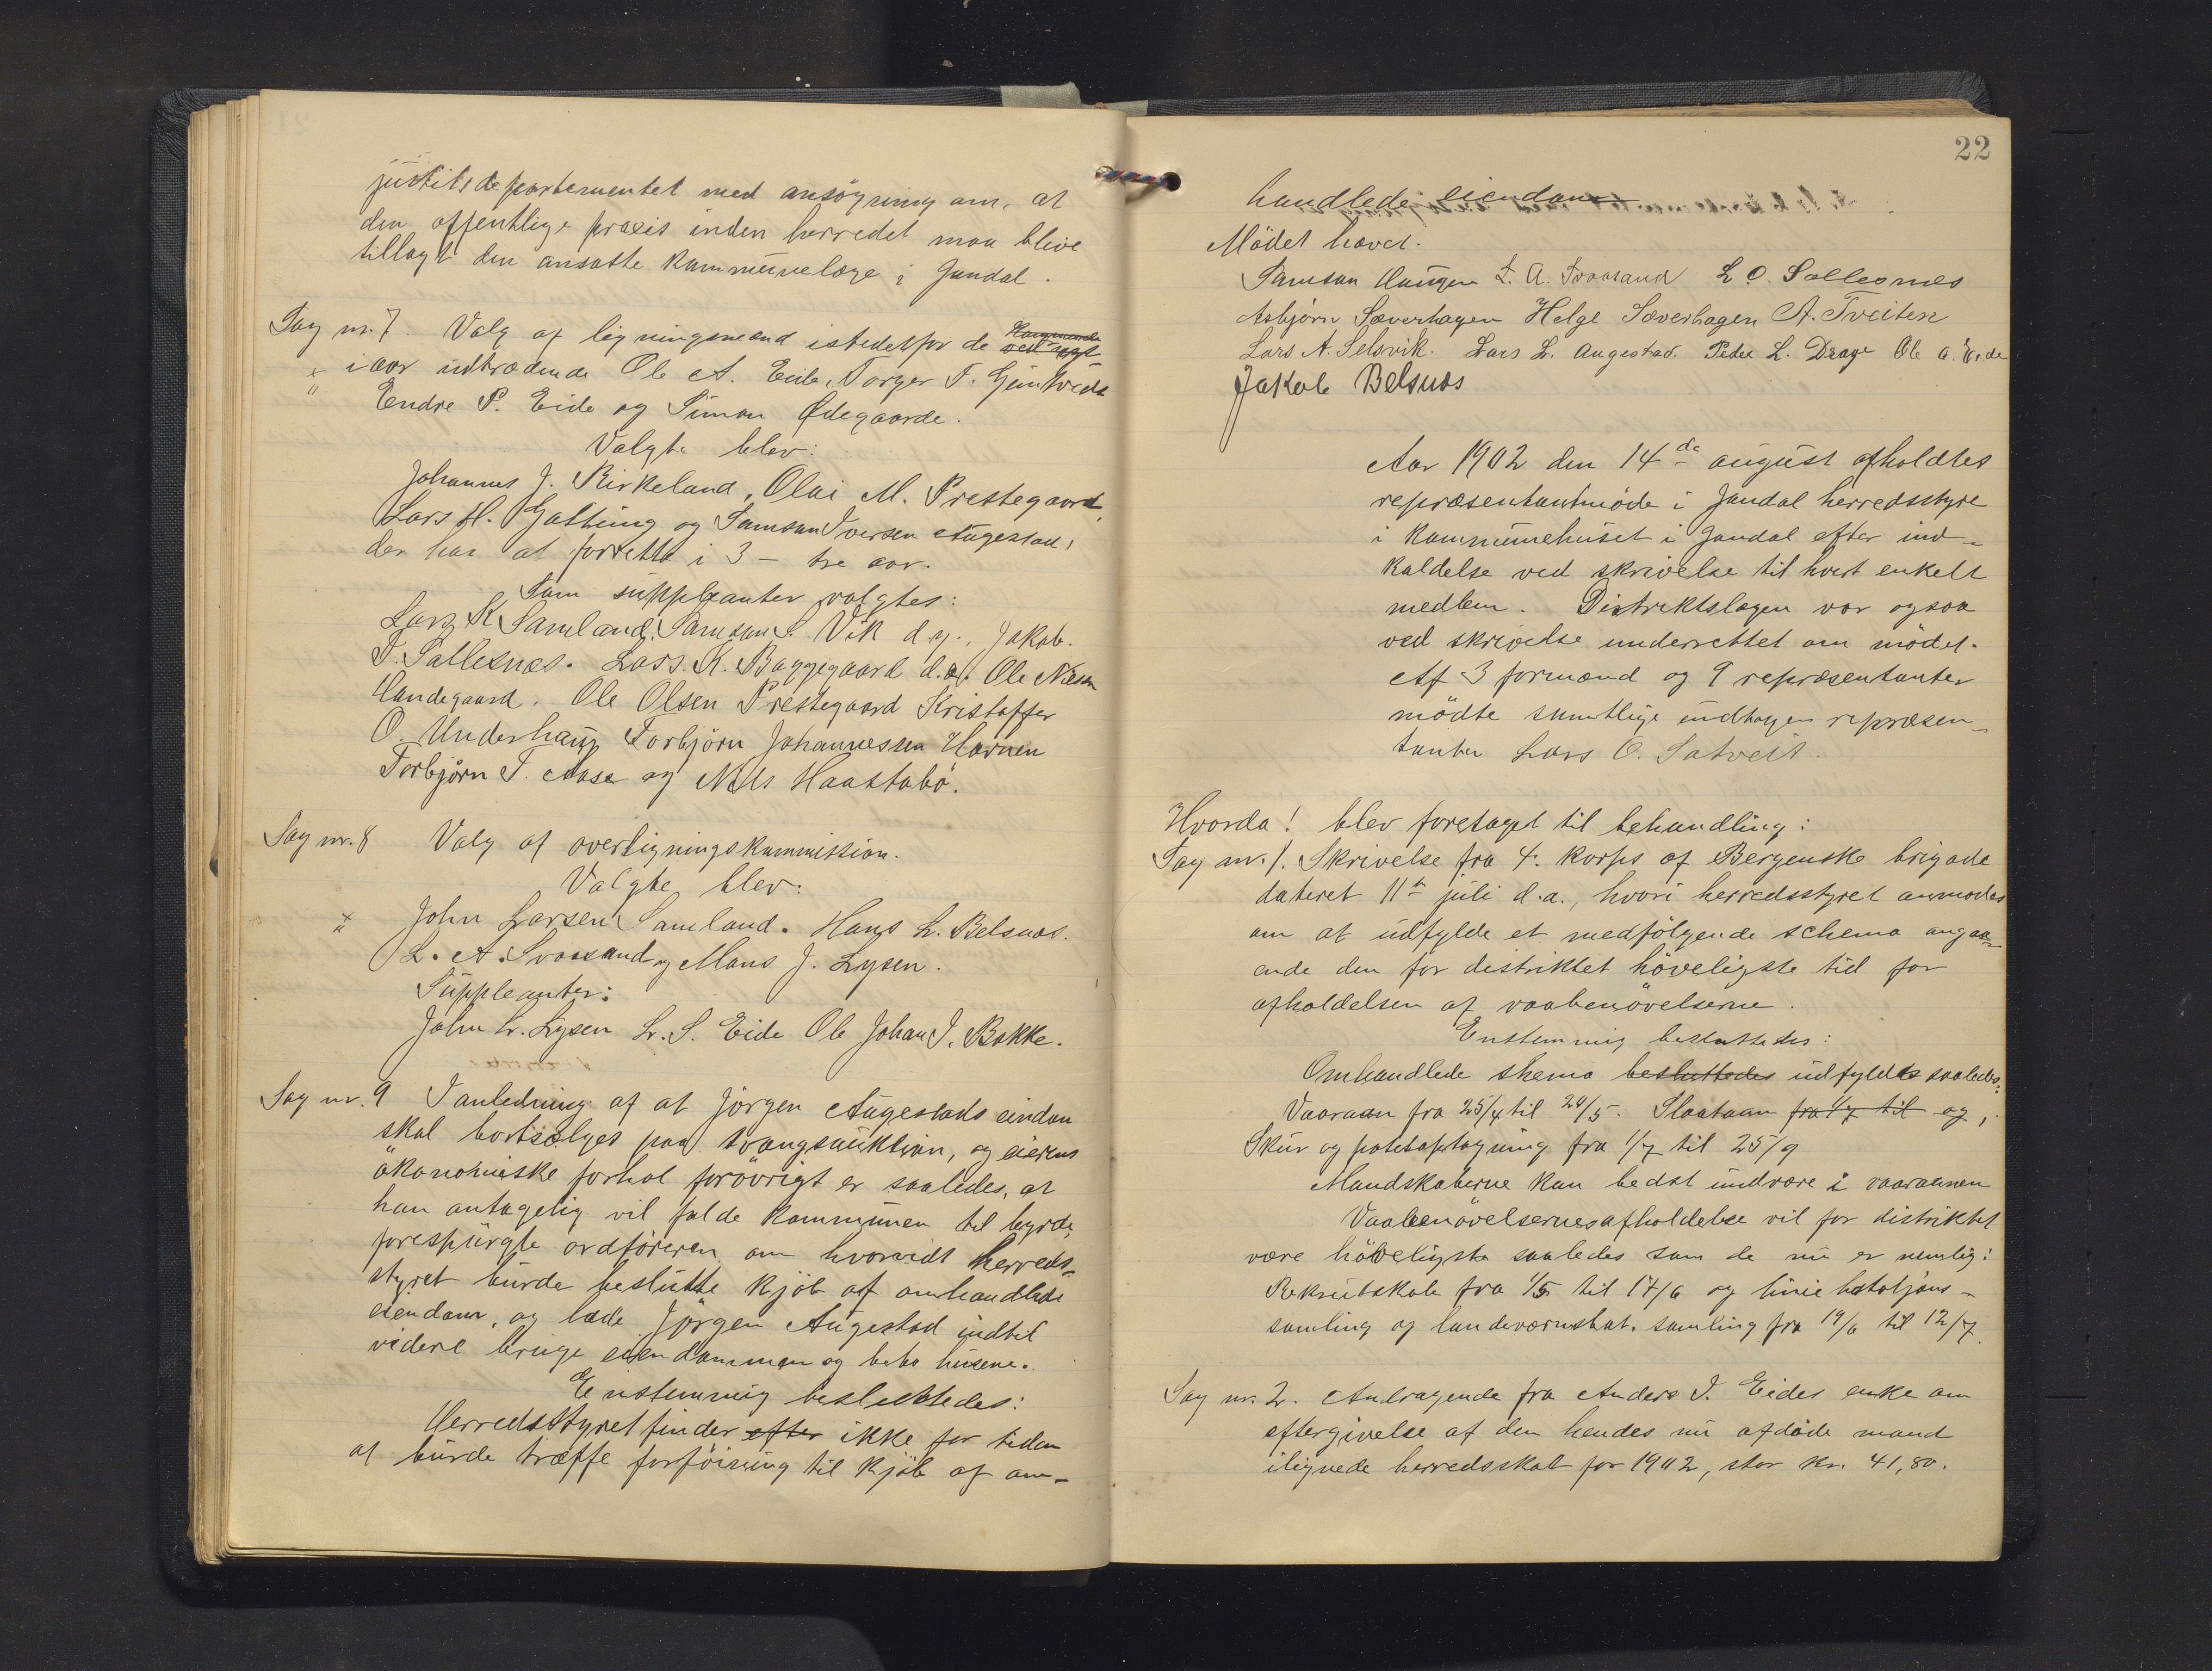 justitsdepartementet med ansögning om, at
den offentlige praxis inden herredet maa blive
tillagt den ansatte kommunelæge i Jondal.
Sag nr. 7. Valg af ligningsmænd istedetfor de
i aar udtrædende Ole A. Eide, Torger T.
Endre P. Eide og Simon Ødegaarde.
Valgte blev:
Johannes J. Birkeland, Olai M. Prestegaard,
Lars H. Gatting og Samson Iversen Augestad,
der har at forrette i 3 - tre aar.
Som suppleanter valgtes:
Lars K Samland, Samson S. Vik d.y., Jakob
T. Sallesnæs. Lars K. Baggegaard d.æ. Ole Nilssen
Handegaard. Ole Olsen Prestegaard Kristoffer
O. Underhaug Torbjörn Johannessen Havnen
Torbjørn T. Aase og Nils Haastabö.
Sag nr. 8 Valg af overligningskommission.
Valgte blev:
John Larsen Samland. Hans L. Belsnæs.
L. A. Svaasand og Mons J. Lysen.
Suppleanter:
John L. Lysen L. S. Eide Ole Johan J. Bakke.
Sag nr. 9 I anledning af at Jörgen Augestads eindom
skal bortsælges paa tvangsauktion, og eierens
ökonomiske forhol forövrigt er saaledes, at
han antagelig vil falde kommunen til byrde,
forespurgte ordföreren om hvorvidt herreds-
styret burde beslutte kjöb af omhandlede
eiendom, og lade Jörgen Augestad indtil
videre bruge eiendommen og bebo husene.
Enstemmig besluttedes:
Herredsstyret finder efter ikke for tiden
at burde træffe forföining til kjöb af om-
22
handlede eiendom
Mödet hævet.
Samson Haugen L. A. Svaasand L O. Sallesnæs
Asbjørn Sæverhagen Helge Sæverhagen A. Tveiten
Lars A. Selsvik. Lars L. Augestad. Peder L. Drage Ole A. Eide
Jakob Belsnæs
Aar 1902 den 14de august afholdtes
repræsentantmöde i Jondal herredsstyre
i kommunehuset i Jondal efter ind-
kaldelse ved skrivelse til hvert enkelt
medlem. Distriktslægen var ogsaa
ved skrivelse underrettet om mödet.
Af 3 formænd og 9 repræsentanter
mödte samtlige undtagen repræsen-
tanten Lars O. Satveit.
Hvorda! blev foretaget til behandling:
Sag nr. 1. Skrivelse fra 4. korps af Bergenske brigade
dateret 11te juli d.a., hvori herredsstyret anmodes
om at udfylde et medfölgende schema angaa-
ende den for distriktet höveligste tid for
afholdelsen af vaabenövelserne.
Enstemmig besluttedes:
Omhandlede skema besluttedes udfyldt saaledes:
Vaaraan fra 25/4 til 24/5. Slaataan fra 1/7 til og,
Skur og potetoptagning fra 1/7 til 25/9
Mandskaberne kan bedst undvære i vaaraanen
Vaabenövelsernes afholdelse vil for distriktet
være höveligste saaledes som de nu er nemlig:
Rekrutskole fra 1/5 til 17/6 og liniebataljons-
samling og landeværnsbat. samling fra 19/6 til 12/7.
Sag nr. 2. Andragende fra Anders I. Eides enke om
eftergivelse af den hendes nu afdöde mand
ilignede herredsskat for 1902, stor kr. 41,80.